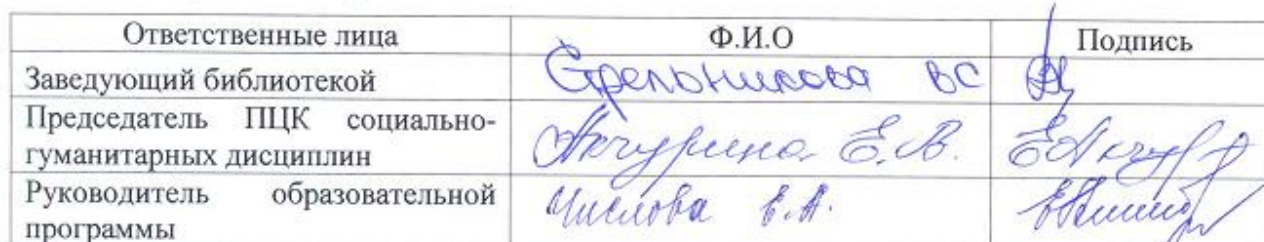 Ответственные лица Ф.И.О Подпись
Заведующий библиотекой Стрельникова ВС
Председатель ПЦК социально-
гуманитарных дисциплин Акчурина Е.В.
Руководитель образовательной
программы Числова Е.А.